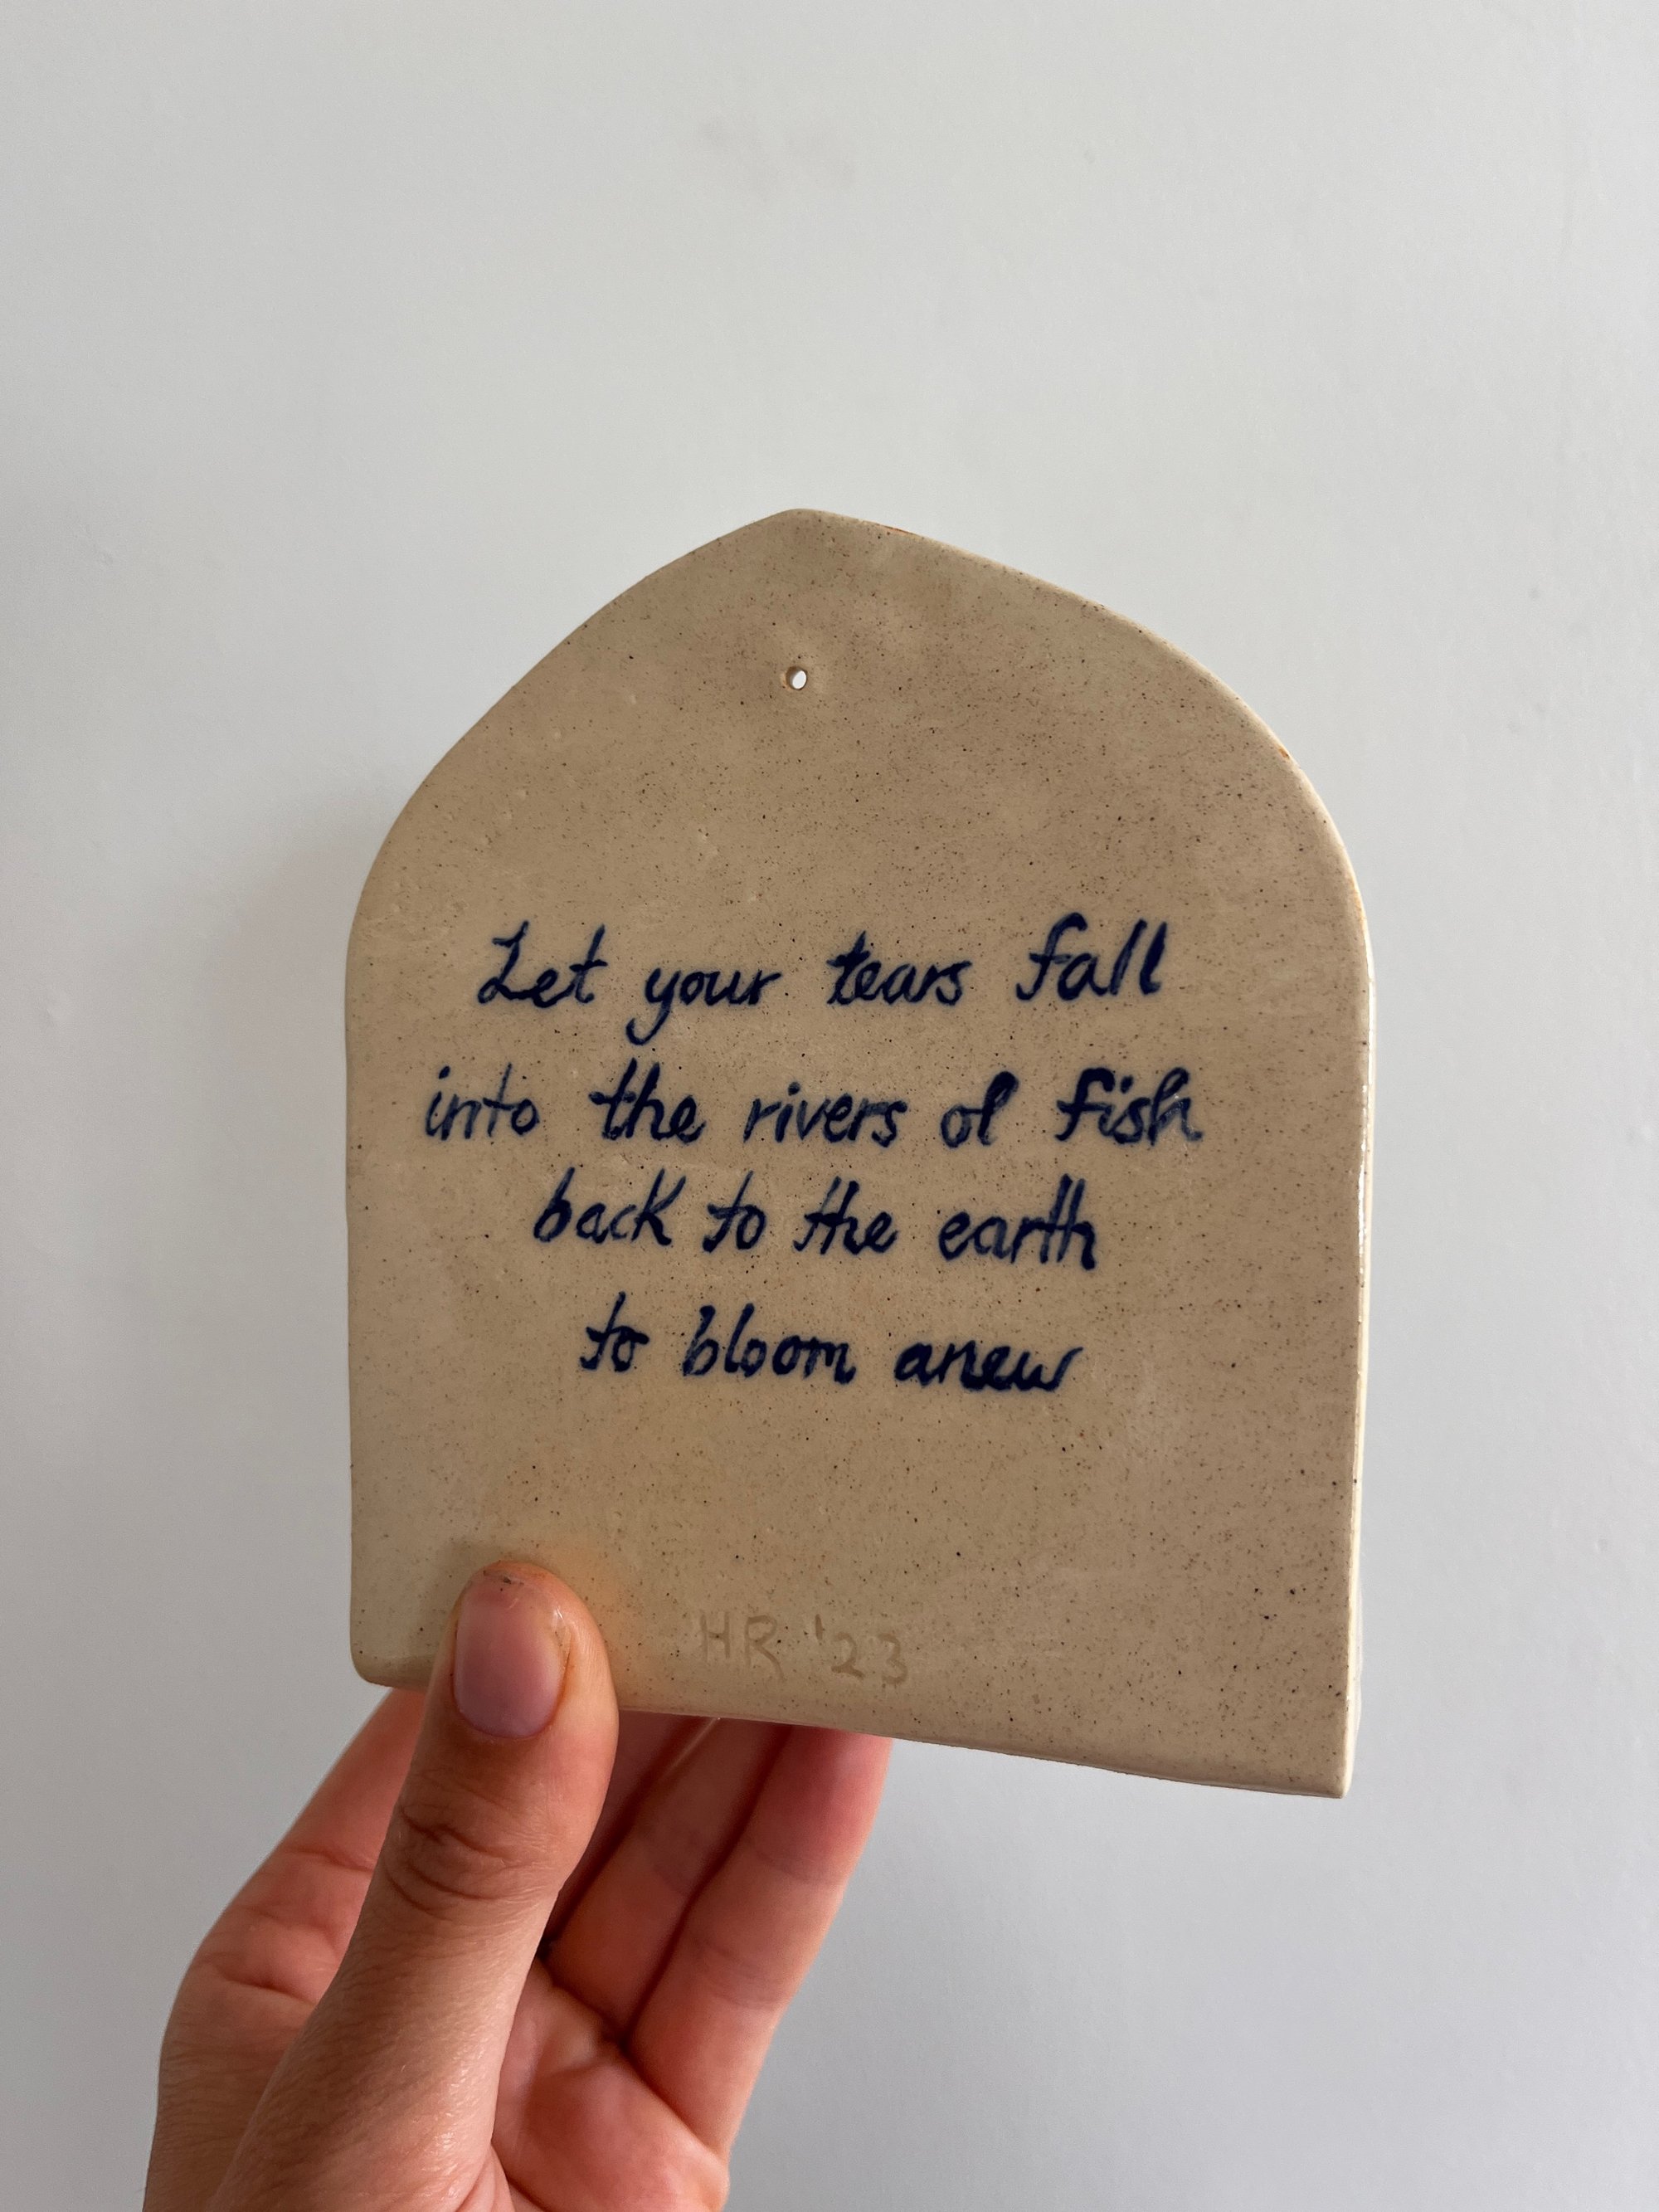 Let your tears fall
into the rivers of fish
back to the earth
to bloom anew
HR '23